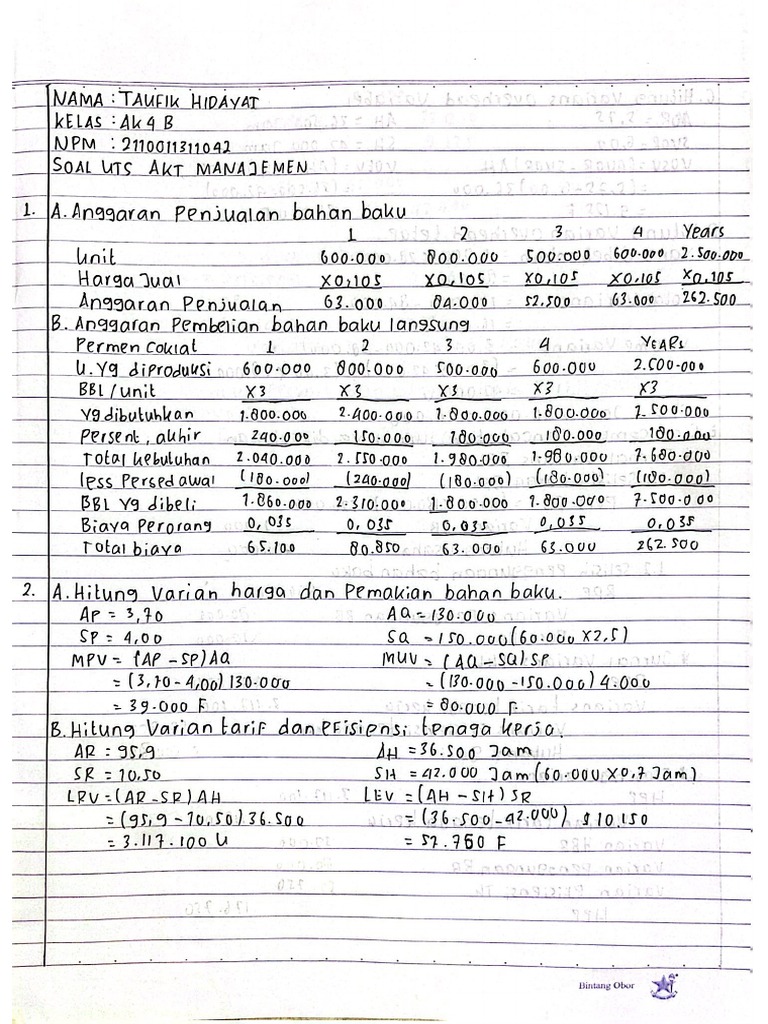 NAMA : TAUFIK HIDAYAT
KELAS : AK4 B
NPM : 2110011311042
SOAL UTS AKT MANAJEMEN
1. A. Anggaran Penjualan bahan baku
1 2 3 4 Years
Unit 600.000 800.000 500.000 600.000 2.500.000
Harga Jual X0,105 X0,105 X0,105 X0.105 X0.105
Anggaran Penjualan 63.000 84.000 52.500 63.000 262.500
B. Anggaran Pembelian bahan baku langsung
Permen Coklat 1 2 3 4 YEARS
U. Yg diproduksi 600.000 800.000 500.000 600.000 2.500.000
BBL / Unit X3 X3 X3 X3 X3
Yg dibutuhkan 1.800.000 2.400.000 1.800.000 1.800.000 7.500.000
Persent, akhir 240.000 150.000 180.000 180.000 180.000
Total kebutuhan 2.040.000 2.550.000 1.980.000 1.980.000 7.680.000
less Persed awal (180.000) (240.000) (180.000) (180.000) (180.000)
BBL Yg dibeli 1.860.000 2.310.000 1.800.000 1.800.000 7.500.000
Biaya Perorang 0,035 0,035 0,035 0,035 0,035
Total biaya 65.100 80.850 63.000 63.000 262.500
2. A. Hitung Varian harga dan Pemakian bahan baku.
AP = 3,70 AQ = 130.000
SP = 4,00 SQ = 150.000 (60.000 X2,5)
MPV = (AP - SP) AQ MUV = (AQ - SQ) SP
= (3,70 - 4,00) 130.000 = (130.000 - 150.000) 4.000
= 39.000 F = 80.000 F
B. Hitung Varian tarif dan efisiensi tenaga kerja.
AR = 95,9 AH = 36.500 Jam
SR = 10,50 SH = 42.000 Jam (60.000 X 0,7 Jam)
LRV = (AR - SR) AH LEV = (AH - SH) SR
= (95,9 - 10,50) 36.500 = (36.500 - 42.000) $ 10.150
= 3.117.100 U = 57.750 F
Bintang Obor